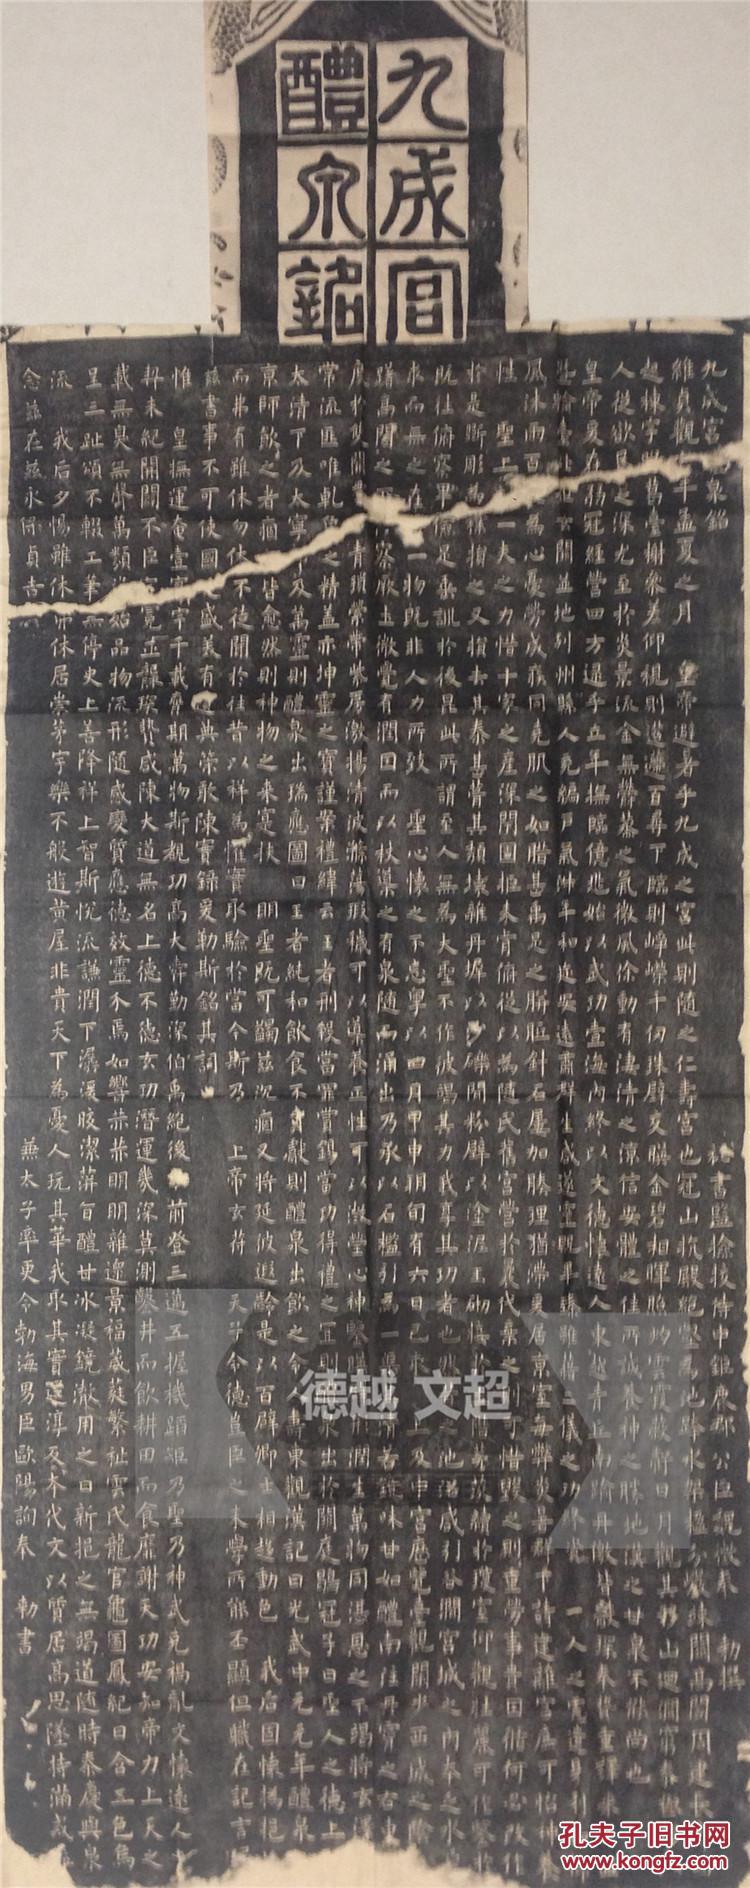 九成宮醴泉銘 秘書監檢校侍中鉅鹿郡公臣魏徵奉 勅撰
維貞觀六年孟夏之月 皇帝避暑乎九成之宮此則隨之仁壽宮也冠山抗殿絕壑為池跨水架楹分巖竦闕高閣周建長
起棟宇膠葛臺榭參差仰視則迢遰百尋下臨則崢嶸千仞珠璧交暎金碧相暉照灼雲霞蔽虧日月觀其移山迴澗窮泰極
人從欲良足深尤至於炎景流金無鬱蒸之氣微風徐動有淒清之涼信安體之佳所誠養神之勝地漢之甘泉不能尚也
皇帝爰在弱冠經營四方逮乎立年撫臨億兆始以武功壹海內終以文德懷遠人東越青丘南踰丹徼皆獻琛奉贄重譯來
暨輪臺北拒玄闕並地列州縣人充編戶氣淑年和迩安遠肅群生咸遂靈貺畢臻雖藉二儀之功終資 一人之慮遺身利
風沐雨百姓為心憂勞成疾同堯肌之如腊甚禹足之胼胝針石屢加腠理猶滯爰居京室每弊炎暑群下請建離宮庶可怡神養
性 聖上愛一夫之力惜十家之產深閉固拒未肯俯從以為隨氏舊宮營於曩代棄之則可惜毀之則重勞事貴因循何必改作
於是斲彫為樸損之又損去其泰甚葺其頹壞雜丹墀以沙礫間粉壁以塗泥玉砌接於土階茅茨續於瓊室仰觀壯麗可作鑒於
既往俯察卑儉足垂訓於後昆此所謂至人無為大聖不作彼竭其力我享其功者也然昔之池沼咸引谷澗宮城之內本乏水
求而無之在乎一物既非人力所致 聖心懷之不忘粤以四月甲申朔旬有六日己亥 上及中宮歷覽臺觀閑步西城之陰
躇高閣之下俯察厥土微覺有潤因而以杖導之有泉隨而涌出乃承以石檻引為一渠其清若鏡味甘如醴南注丹霄之右東
度於雙闕貫穿青瑣縈帶紫房激揚清波滌蕩瑕穢可以導養正性可以澂瑩心神鑒映群形潤生萬物同湛恩之不竭將玄澤
常流匪唯乾象之精蓋亦坤靈之寶謹案禮緯云王者刑殺當罪賞錫當功得禮之宜則醴泉出於闕庭鶡冠子曰聖人之德上
太清下及太寧中及萬靈則醴泉出瑞應圖曰王者純和飲食不貢獻則醴泉出飲之令人壽東觀漢記曰光武中元元年醴泉
京師飲之者痼疾皆愈然則神物之來寔扶 明聖既可蠲茲沉痼又將延彼遐齡是以百辟卿士相趨動色 我后固懷撝挹
而弗有雖休勿休不徒聞於往昔以祥為懼實取驗於當今斯乃 上帝玄符 天子令德豈臣之末學所能丕顯但職在記言
茲書事不可使國之盛美有遺典策敢陳實錄爰勒斯銘其詞曰
惟 皇撫運奄壹寰宇千載膺期萬物斯覩功高大舜勤深伯禹絕後光前登三邁五握機蹈矩乃聖乃神武克禍亂文懷遠人
書契未紀開闢不臣冠冕並襲琛贄咸陳大道無名上德不德玄功潛運幾深莫測鑿井而飲耕田而食靡謝天功安知帝力上天之
載無臭無聲萬類資始品物流形隨感變質應德效靈介焉如響赫赫明明雜遝景福葳蕤繁祉雲氏龍官龜圖鳳紀日含五色烏
呈三趾頌不輟工筆無停史上善降祥上智斯悅流謙潤下潺湲皎潔蓱旨醴甘冰凝鏡澈用之日新挹之無竭道隨時泰慶與泉
流 我后夕惕雖休弗休居崇茅宇樂不般遊黃屋非貴天下為憂人玩其華我取其實還淳反本代文以質居高思墜持滿戒
念茲在茲永保貞吉 兼太子率更令勃海男臣歐陽詢奉 勅書
九成宮
醴泉銘
德越文超
孔夫子旧书网
www.kongfz.com